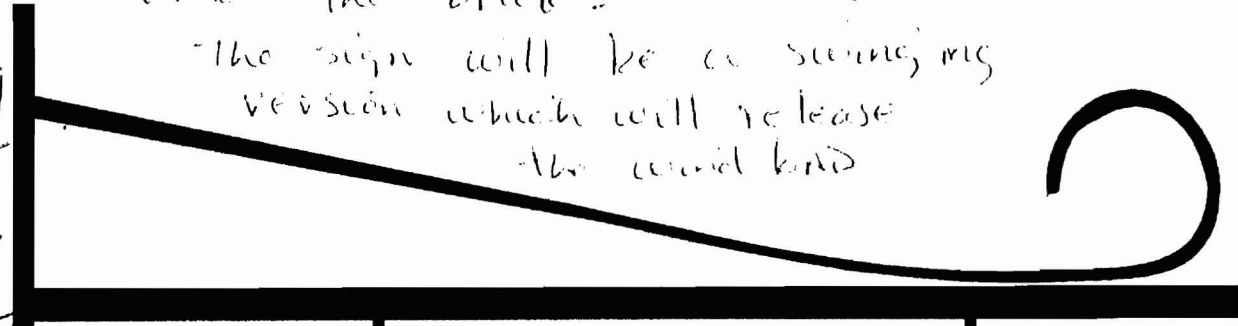 the
The sign will be a swinging
version which will release
the wind